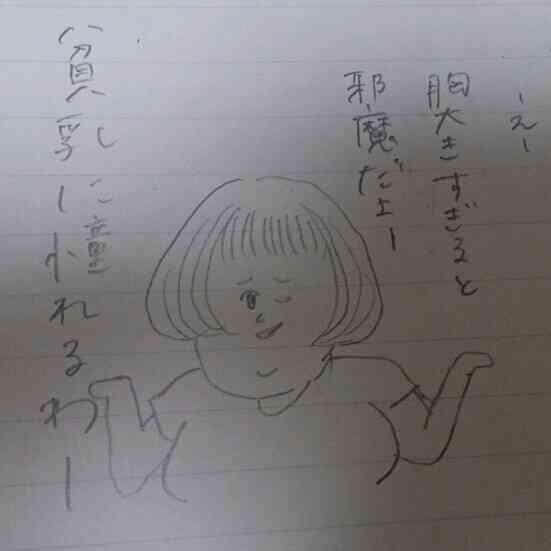 えー
胸大きすぎると
邪魔だよー
貧乳に憧れるわー